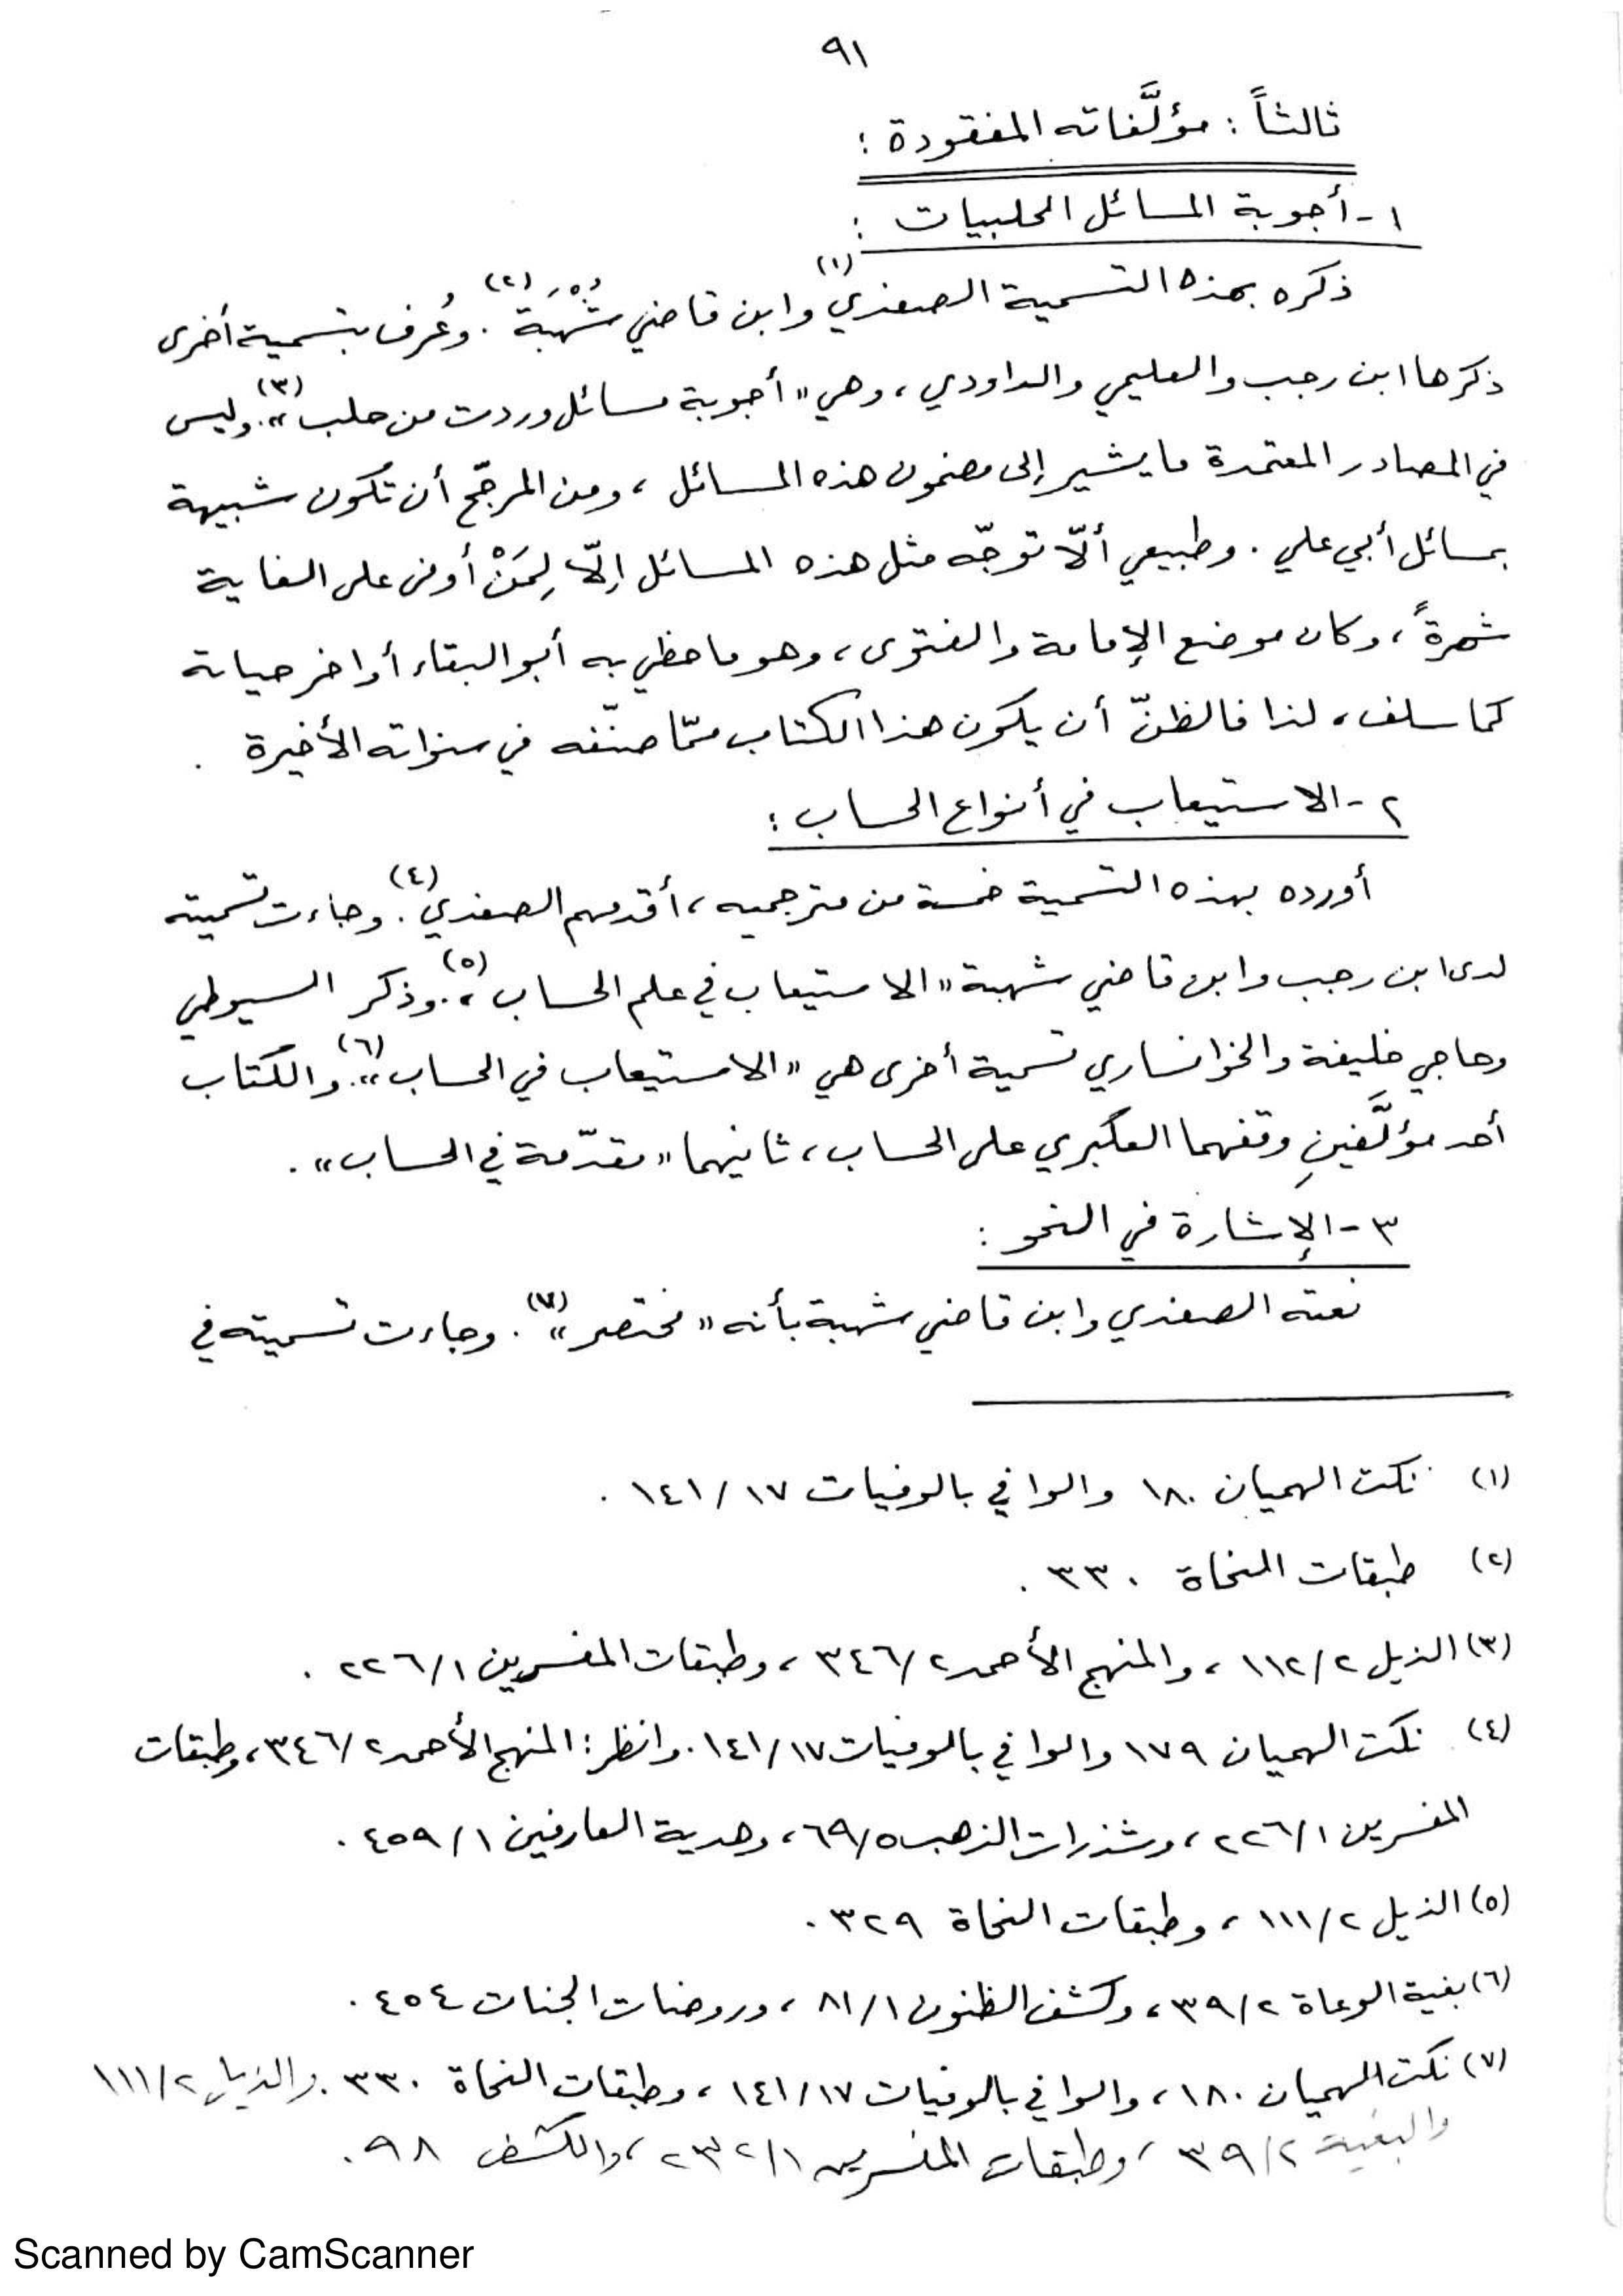 ٩١
ثالثاً : مؤلَّفاته المفقودة :
١- أجوبة المسائل الحلبيات :
ذكره بهذه التسمية الصفدي(١) وابن قاضي شُهْبَة(٢) . وعُرف بتسمية أخرى
ذكرها ابن رجب والعليمي والداودي ، وهي « أجوبة مسائل وردت من حلب »(٣). وليس
في المصادر المعتمدة ما يشير إلى مضمون هذه المسائل ، ومن المرجّح أن تكون شبيهة
بمسائل أبي علي . وطبيعي ألّا توجّه مثل هذه المسائل إلّا لِمَنْ أوفى على الغاية
شهرةً ، وكان موضع الإمامة والفتوى ، وهو ما حظي به أبو البقاء أواخر حياته
كما سلف ، لذا فالظنّ أن يكون هذا الكتاب ممّا صنّفه في سنواته الأخيرة .
٢- الاستيعاب في أنواع الحساب :
أورده بهذه التسمية خمسة من مترجميه ، أقدمهم الصفدي(٤) . وجاءت تسميته
لدى ابن رجب وابن قاضي شهبة « الاستيعاب في علم الحساب »(٥). وذكر السيوطي
وحاجي خليفة والخوانساري تسمية أخرى هي « الاستيعاب في الحساب »(٦). والكتاب
أحد مؤلَّفينِ وقفهما العكبري على الحساب ، ثانيهما « مقدّمة في الحساب » .
٣- الإشارة في النحو :
نعته الصفدي وابن قاضي شهبة بأنه « مختصر »(٧) . وجاءت تسميته في
(١) نكت الهميان ١٨٠ والوافي بالوفيات ١٧/ ١٤١ .
(٢) طبقات النحاة ٣٣٠ .
(٣) الذيل ٢/ ١١٢ ، والمنهج الأحمد ٢/ ٣٤٦ ، وطبقات المفسرين ١/ ٢٢٦ .
(٤) نكت الهميان ١٧٩ والوافي بالوفيات ١٧/ ١٤١ . وانظر : المنهج الأحمد ٢/ ٣٤٦ ، وطبقات
المفسرين ١/ ٢٢٦ ، وشذرات الذهب ٥/ ٦٩ ، وهدية العارفين ١/ ٤٥٩ .
(٥) الذيل ٢/ ١١١ ، وطبقات النحاة ٣٢٩ .
(٦) بغية الوعاة ٢/ ٣٩ ، وكشف الظنون ١/ ٨١ ، وروضات الجنات ٤٥٤ .
(٧) نكت الهميان ١٨٠ ، والوافي بالوفيات ١٧/ ١٤١ ، وطبقات النحاة ٣٣٠ . والذيل ٢/ ١١١
والبغية ٢/ ٣٩ ، وطبقات المفسرين ١/ ٢٣٢ ، والكشف ٩٨ .
Scanned by CamScanner